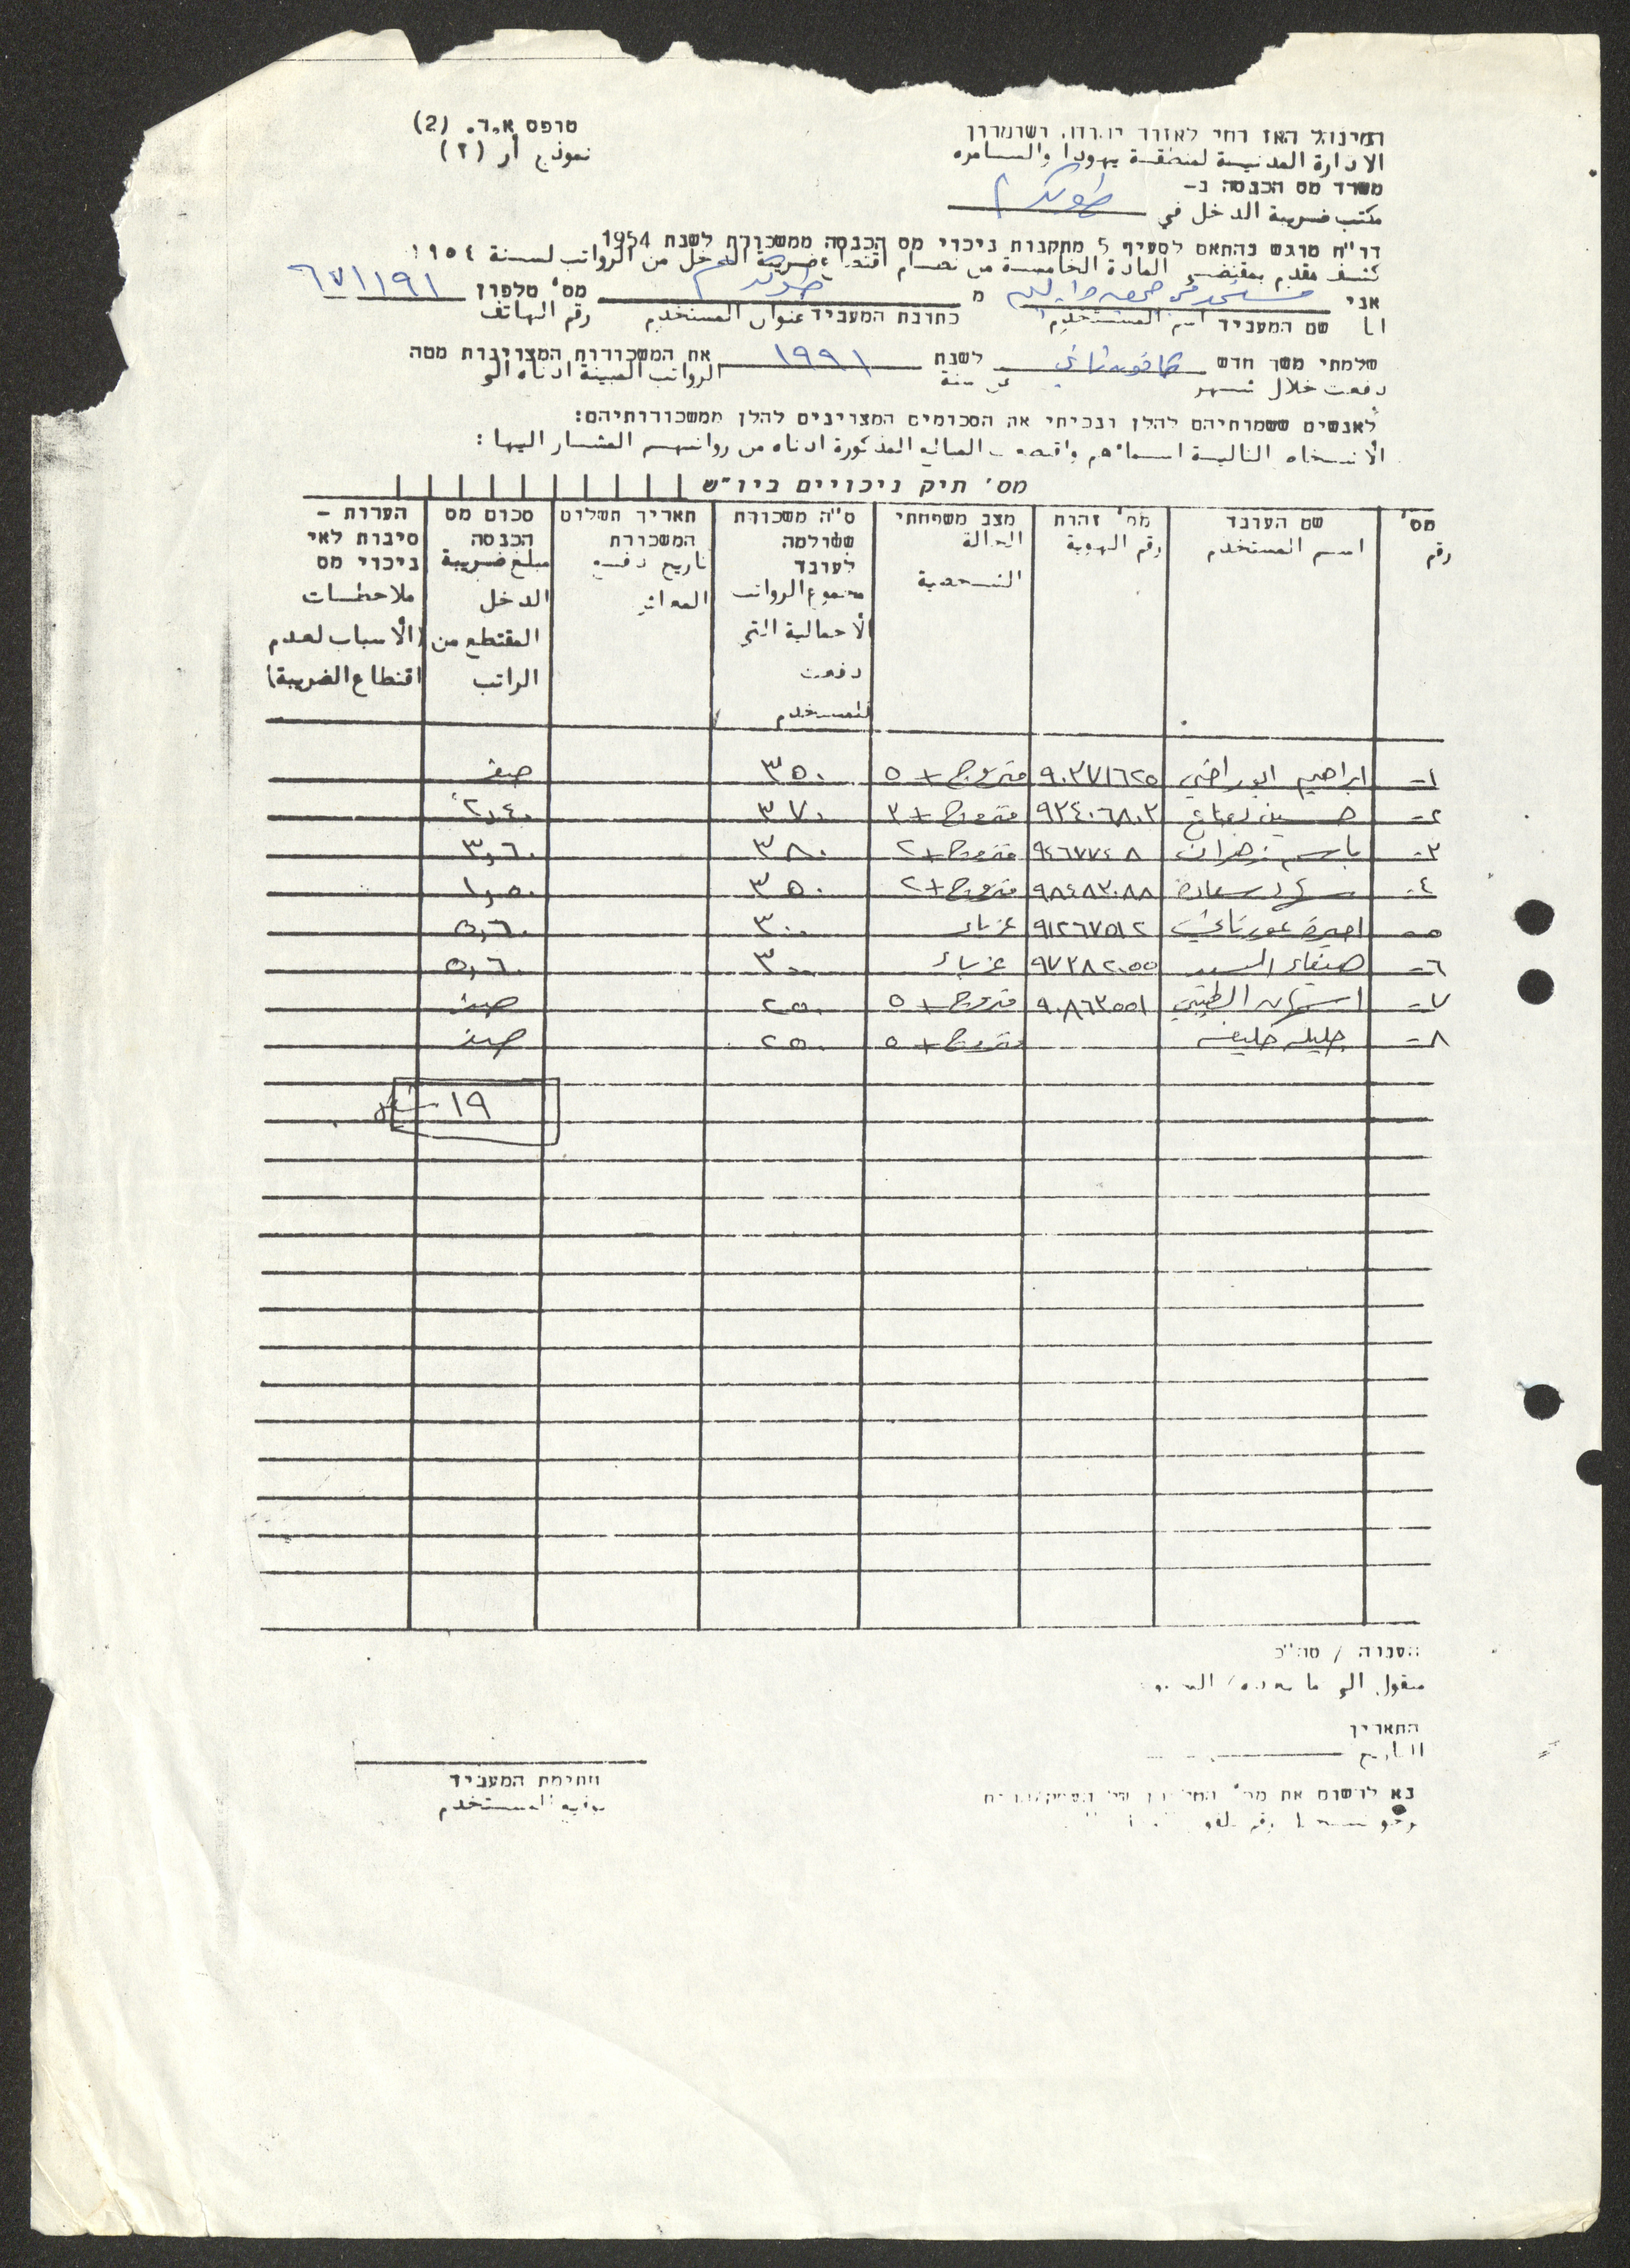 טופס א.ד. (2)
نموذج أر (٢)
המינהל האזרחי לאזור יהודה ושומרון
الادارة المدنية لمنطقة يهودا والسامره
משרד מס הכנסה ב-
مكتب ضريبة الدخل في طولكرم
דו"ח מוגש בהתאם לסעיף 5 מתקנות ניכוי מס הכנסה ממשכורת לשנת 1954
كشف مقدم بمقتضى المادة الخامسة من نظام اقتطاع ضريبة الدخل من الرواتب لسنة ١٩٥٤
אני מ طولكرم מס' טלפון ٦٧١١٩١
انا שם המעביד اسم المستخدم כתובת המעביד عنوان المستخدم رقم الهاتف
שלמתי משך חדש كانون ثاني לשנת ١٩٩١ את המשכורות המצויינות מטה
دفعت خلال شهر في سنة الرواتب المبينة ادناه الى
לאנשים ששמותיהם להלן ונכיתי את הסכומים המצויינים להלן ממשכורותיהם:
الأشخاص التالية اسماؤهم واقتطعت المبالغ المذكورة ادناه من رواتبهم المشار اليها:
מס' תיק ניכויים ביו"ש
מס' שם העובד מס' זהות מצב משפחתי ס"ה משכורת תאריך תשלום סכום מס הערות -
رقم اسم المستخدم رقم الهوية الحالة ששולמה המשכורת הכנסה סיבות לאי
الشخصية לעובד تاريخ دفع مبلغ ضريبة ניכוי מס
مجموع الرواتب المعاش الدخل ملاحظات
الأجمالية التي المقتطع من (الأسباب لعدم
دفعت الراتب اقتطاع الضريبة)
للمستخدم
١- ابراهيم ابو راضي ٩٠٣٧١٦٢٥ متزوج + ٥ ٣٥٠ صفر
٢- حسين ٩٢٤٠٦٨٠٣ متزوج + ٣ ٣٧٠ ٢,٤٠
٣- باسم زهران ٩٤٦٧٧٤٨ متزوج + ٢ ٣٨٠ ٣,٦٠
٤- سعادة ٩٨٤٨٣٠٨٨ متزوج + ٢ ٣٥٠ ١,٥٠
٥- اميرة ٩١٢٦٧٥١٢ عزباء ٣٠٠ ٥,٦٠
٦- صفاء السيد ٩٧٣٨٢٠٥٥ عزباء ٣٠٠ ٥,٦٠
٧- ٩٠٨٦٣٥٥١ متزوج + ٥ ٢٥٠ صفر
٨- جليله خليفه متزوج + ٥ ٢٥٠ صفر
١٩
העברה / סה"כ
منقول الى ما بعده /
התאריך
التاريخ
חתימת המעביד
توقيع المستخدم
נא לרשום את מס'